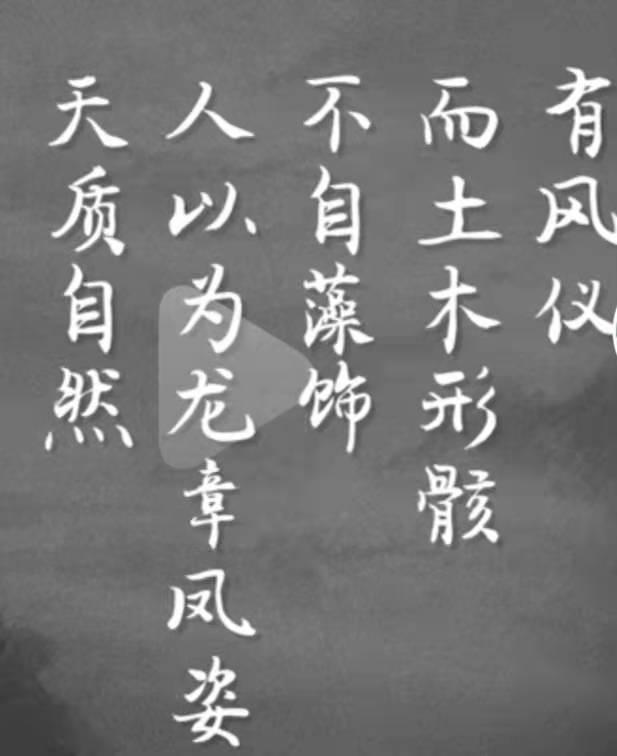 有风仪
而土木形骸
不自藻饰
人以为龙章凤姿
天质自然